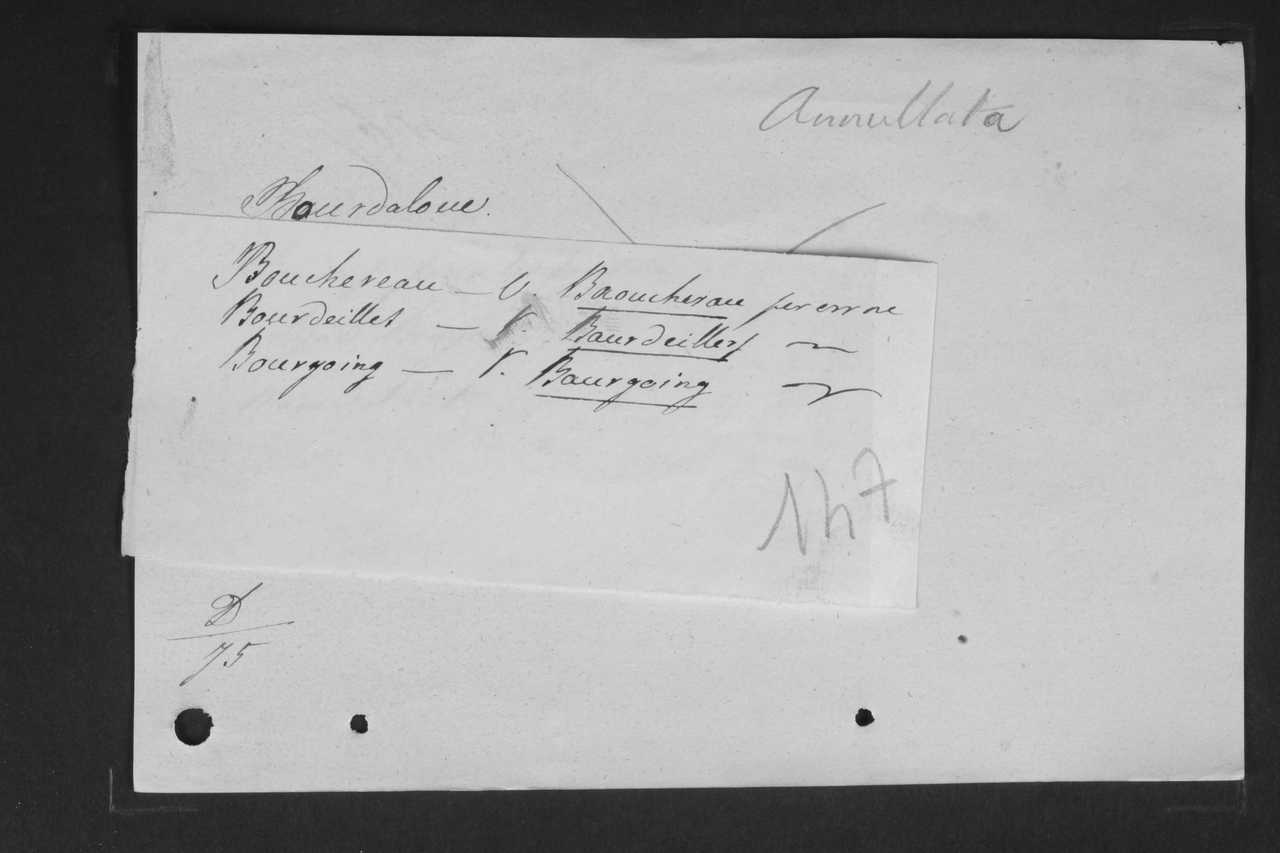 Annullata
Bourdaloue.
Bouchereau — V. Baoucherau per errore
Bourdeilles — V. Baurdeilles
Bourgoing — V. Baurgoing
147
D
75